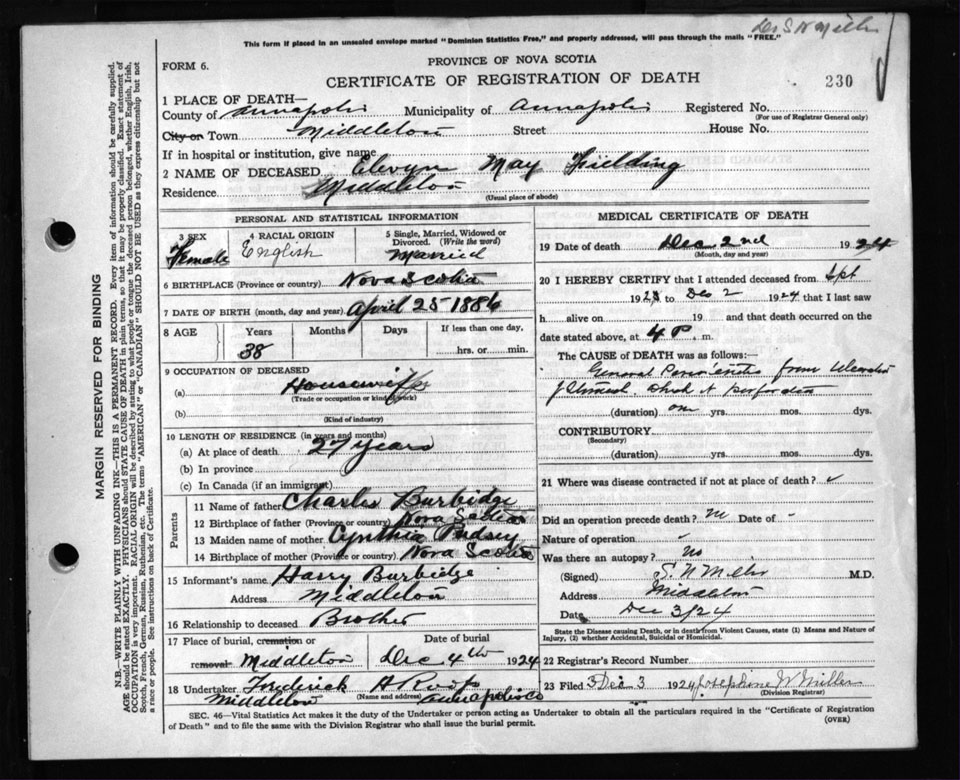 Dr S N Miller
This form if placed in an unsealed envelope marked "Dominion Statistics Free," and properly addressed, will pass through the mails "FREE."
FORM 6.
PROVINCE OF NOVA SCOTIA
CERTIFICATE OF REGISTRATION OF DEATH
230
1 PLACE OF DEATH—
County of Annapolis Municipality of Annapolis Registered No.
(For use of Registrar General only)
City or Town Middleton Street House No.
If in hospital or institution, give name
2 NAME OF DECEASED Elevyn May Fielding
Residence Middleton
(Usual place of abode)
PERSONAL AND STATISTICAL INFORMATION
3 SEX
Female
4 RACIAL ORIGIN
English
5 Single, Married, Widowed or Divorced. (Write the word)
Married
6 BIRTHPLACE (Province or country) Nova Scotia
7 DATE OF BIRTH (month, day and year) April 25 1886
8 AGE Years Months Days If less than one day,
38 hrs. or min.
9 OCCUPATION OF DECEASED
(a) Housewife
(Trade or occupation or kind of work)
(b)
(Kind of industry)
10 LENGTH OF RESIDENCE (in years and months)
(a) At place of death 27 years
(b) In province
(c) In Canada (if an immigrant)
Parents
11 Name of father Charles Burbidge
12 Birthplace of father (Province or country) Nova Scotia
13 Maiden name of mother Cynthia
14 Birthplace of mother (Province or country) Nova Scotia
15 Informant's name Harry Burbidge
Address Middleton
16 Relationship to deceased Brother
17 Place of burial, cremation or removal Middleton
Date of burial
Dec 4th 1924
18 Undertaker Frederick A Roop
(Name and address)
Middleton Annapolis Co
MEDICAL CERTIFICATE OF DEATH
19 Date of death Dec 2nd 1924
(Month, day and year)
20 I HEREBY CERTIFY that I attended deceased from Spt
1923 to Dec 2 1924 that I last saw
h alive on 19 and that death occurred on
date stated above, at 4 P. m.
The CAUSE OF DEATH was as follows:
General from
(duration) one yrs. mos. dys.
CONTRIBUTORY
(Secondary)
(duration) yrs. mos. dys.
21 Where was disease contracted if not at place of death?
Did an operation precede death? no Date of -
Nature of operation -
Was there an autopsy? No
(Signed) S. N Miller M.D.
Address Middleton
Date Dec 3/24
State the Disease causing Death, or in death from Violent Causes, state (1) Means and Nature of Injury, (2) whether Accidental, Suicidal or Homicidal.
22 Registrar's Record Number
23 Filed Dec 3 1924 Josephine W Miller
(Division Registrar)
SEC. 46—Vital Statistics Act makes it the duty of the Undertaker or person acting as Undertaker to obtain all the particulars required in the "Certificate of Registration
of Death" and to file the same with the Division Registrar who shall issue the burial permit.
(OVER)
MARGIN RESERVED FOR BINDING
N.B.—WRITE PLAINLY WITH UNFADING INK—THIS IS A PERMANENT RECORD. Every item of information should be carefully supplied.
AGE should be stated EXACTLY. PHYSICIANS should STATE CAUSE OF DEATH in plain terms, so that it may be properly classified. Exact statement of
OCCUPATION is very important. RACIAL ORIGIN will be described by stating to what people or tongue the deceased person belonged, whether English, Irish,
Scotch, French, German, Russian, Ruthenian, etc. The terms "AMERICAN" or "CANADIAN" SHOULD NOT BE USED as they express citizenship but not
a race or people. See instructions on back of Certificate.